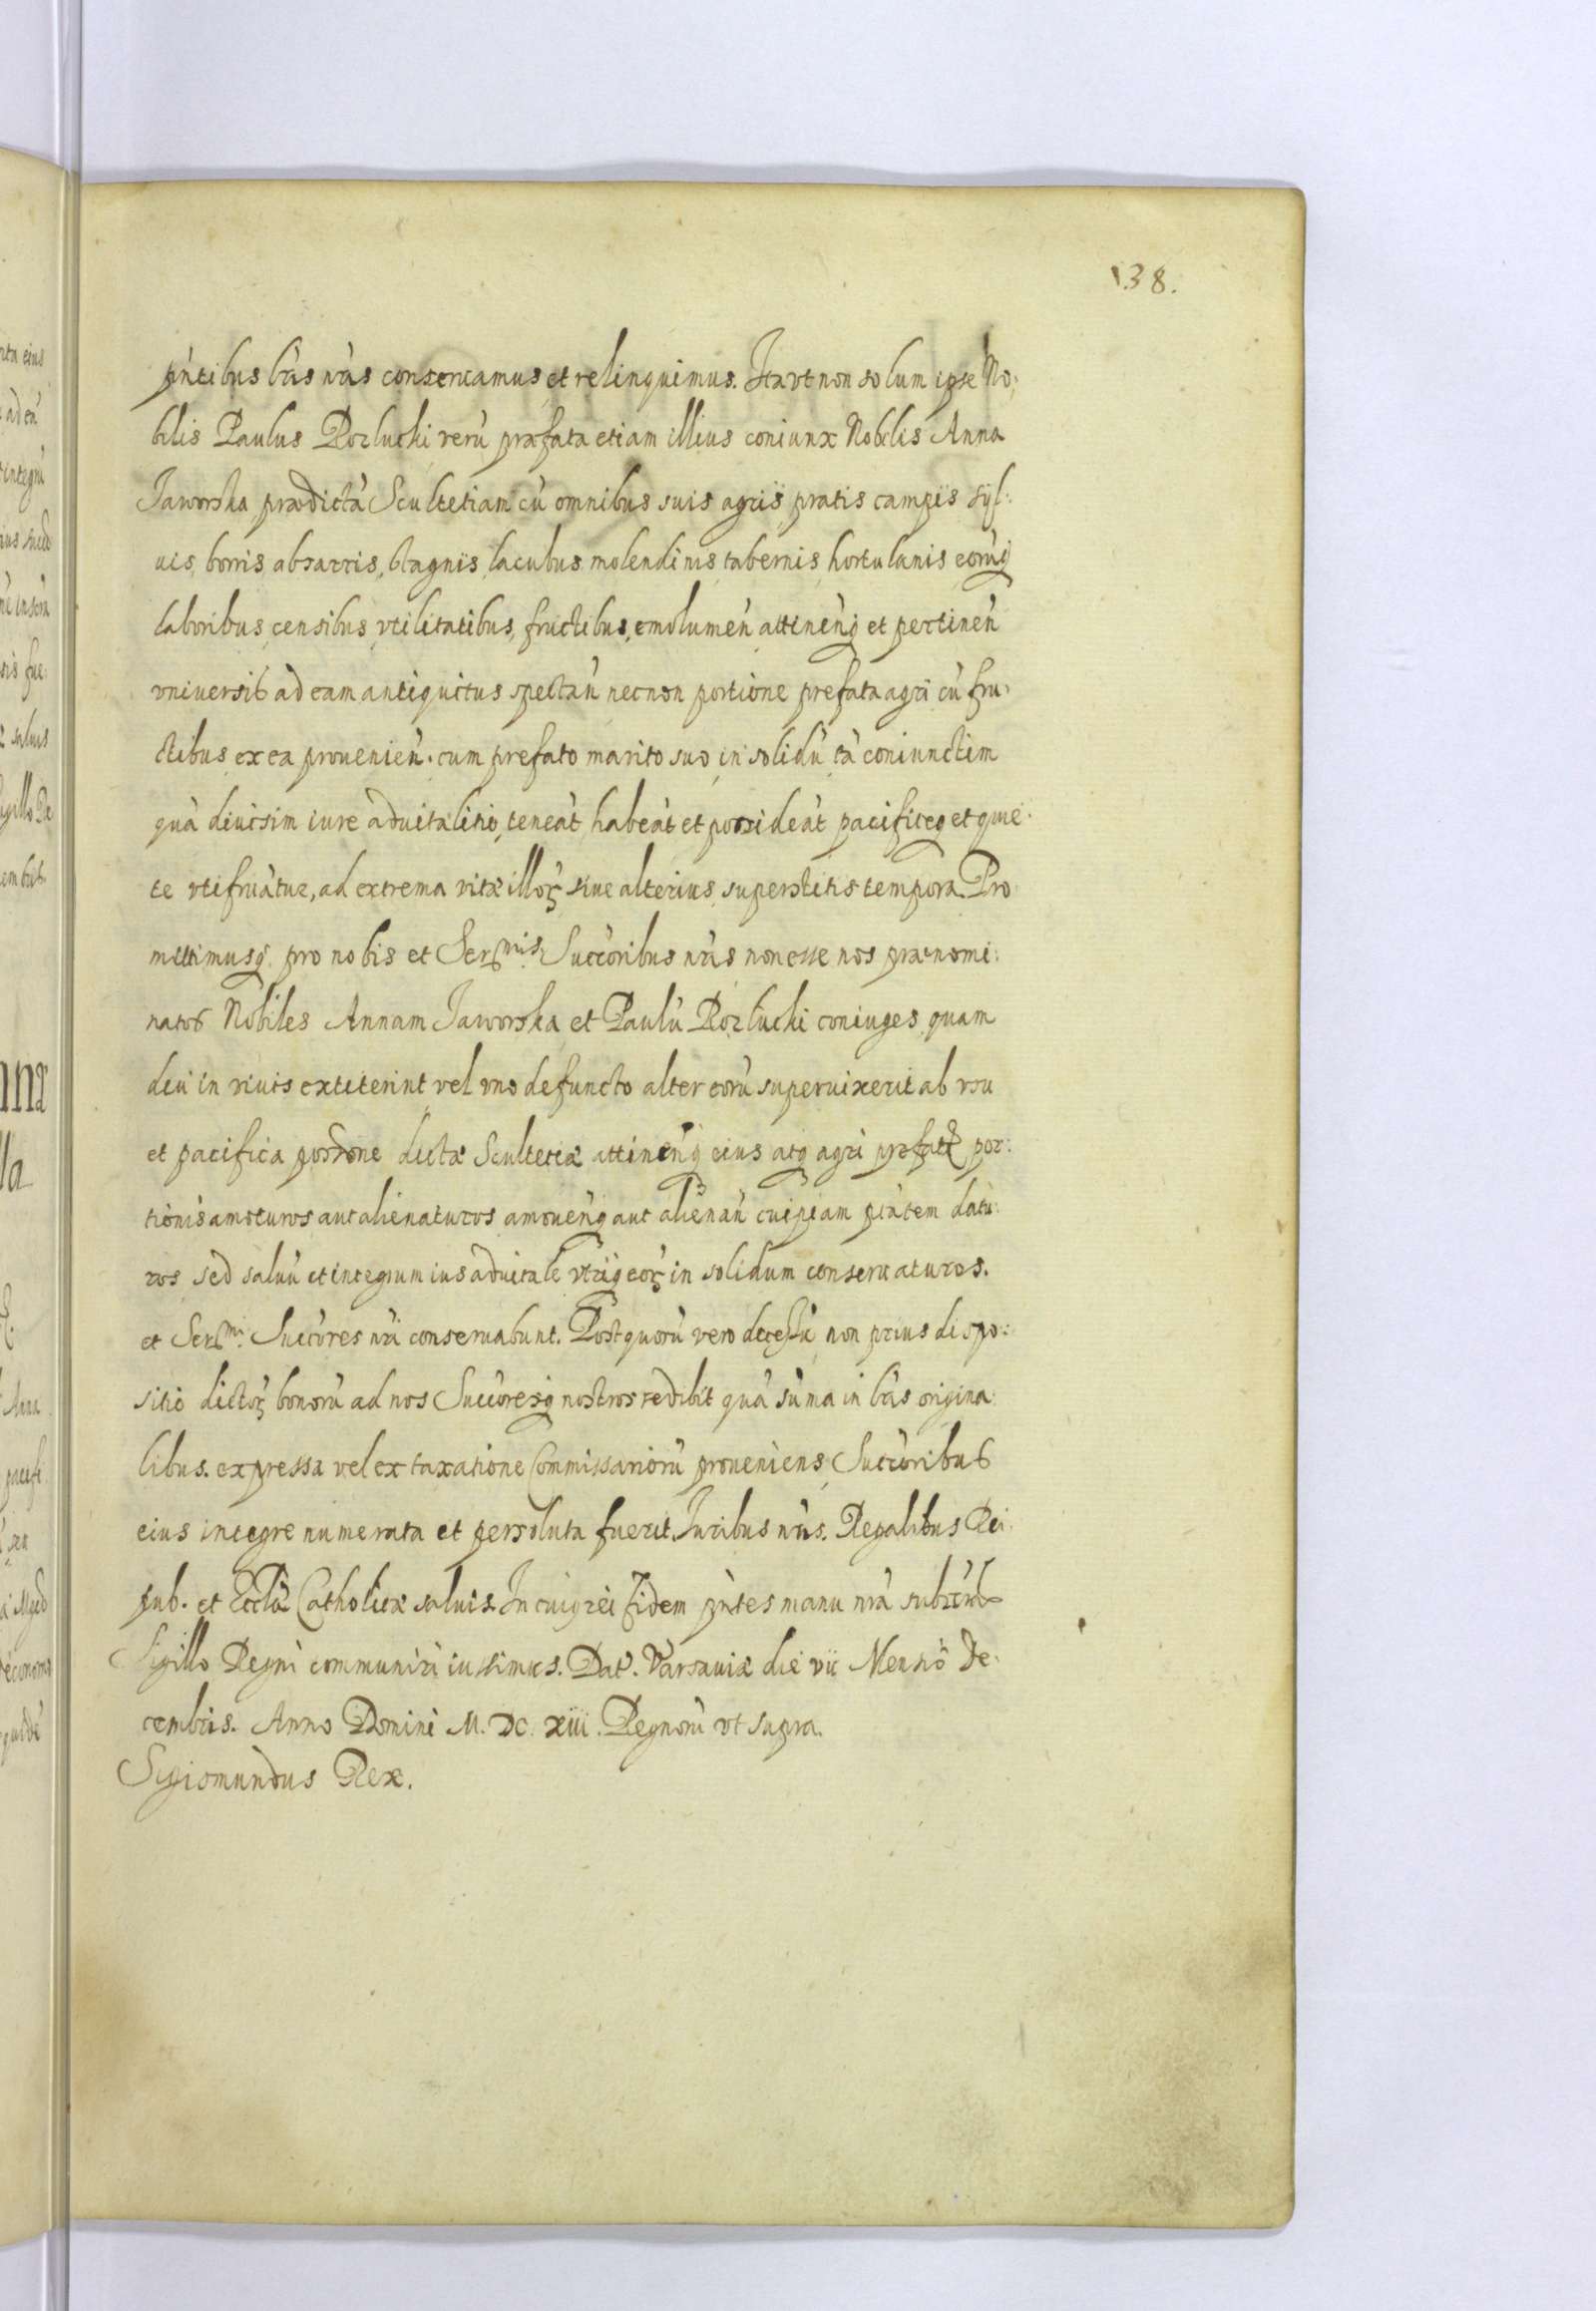 138.
pñtibus lrãs nrãs conseruamus et relinquimus. Ita vt non solum ipse No:
bilis Paulus Rozlucki verũ præfata etiam illius coniunx Nobilis Anna
Jaworska prædictã Scultetiam cũ omnibus suis agris pratis campis syl:
uis, borris absarris, stagnis, lacubus molendinis tabernis hortulanis eorũq
laboribus censibus vtilitatibus, fructibus, emolumeñ attineñq et pertineñ
vniversis ad eam antiquitus spectañ necnon portione prefata agri cũ fru:
ctibus ex ea provenieñ. cum prefato marito suo in solidũ tã coniunctim
quã diuisim iure aduitalitio, teneãt habeãt et possideãt pacificeq et quie:
te vtifruãtur, ad extrema vitæ illoꝝ siue alterius superstitis tempora. Pro
mittimusq pro nobis et Ser^mis. Succoribus nris non esse nos prænomi:
natos Nobiles Annam Jaworska et Paulũ Rozlucki coniuges quam
diu in viuis extiterint vel vno defuncto alter eorũ superuixerit ab vsu
et pacifica possone dictæ Scultetiæ attineñq eius atq agri præfatæ por:
tionis amoturos aut alienaturos amoueñq aut alienañ cuipiam ptãtem datu:
ros sed saluũ et integrum ius aduitale vtriq eoꝝ in solidum conseruaturos.
et Ser^mi. Succores nri conseruabunt. Post quorũ vero decessũ non prius dispo:
sitio dictoꝝ bonorũ ad nos Succoresq nostros redibit quã suma in lris origina:
libus. expressa vel ex taxatione Commissariorũ proueniens Succoribus
eius integre numerata et persoluta fuerit. Iuribus nris. Regalibus Rei
pub. et Ecclã Catholicæ saluis. In cuiq rei fidem pñtes manu nrã
Sigillo Regni communiri iussimus. Dat. Varsauiæ die vii Mensis De:
cembris. Anno Domini M. DC. xiii. Regnorũ vt supra.
Sigismundus Rex.